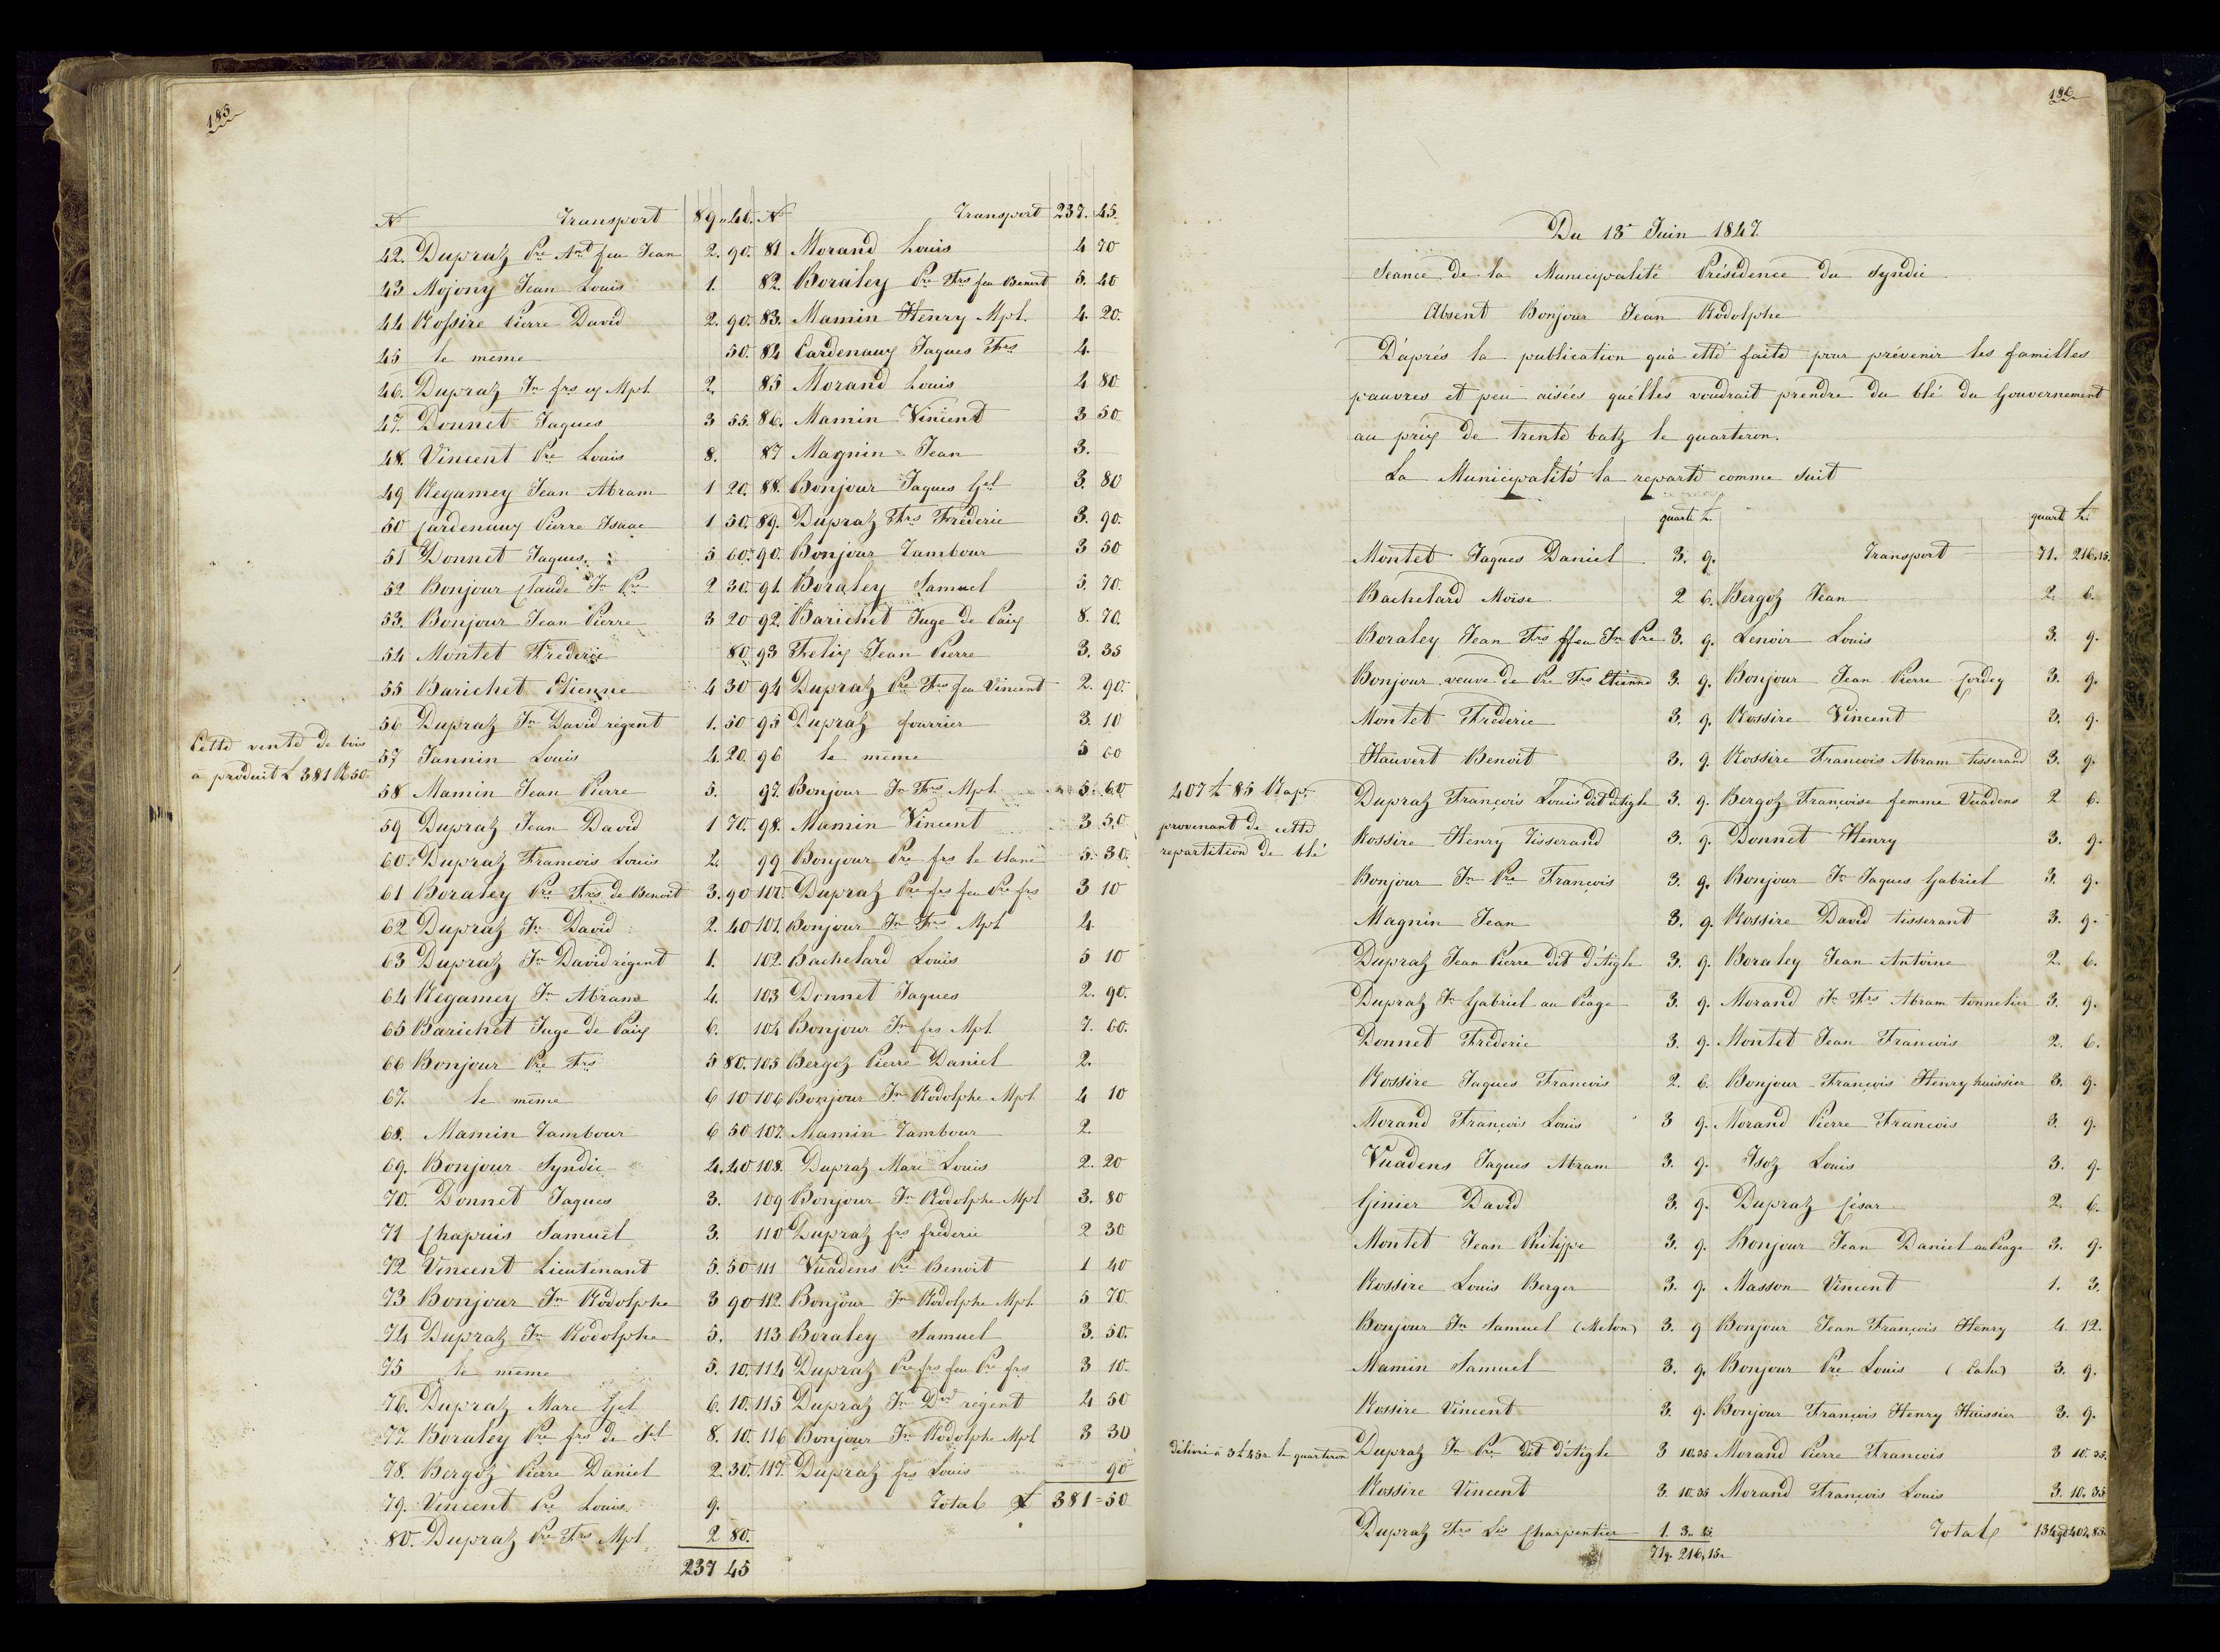 185
N° Transport 89 „ 46.
42. Dupraz Pre Ant feu Jean 2. 90.
43 Mojony Jean Louis 1.
44 Rossire Pierre David 2. 90.
45 le même 50.
46. Dupraz Jn frs ex Mpl. 2.
47. Donnet Jaques 3 55.
48. Vincent Pre Louis 8.
49 Regamey Jean Abram 1 20.
50 Cardenaux Pierre Isaac 1 50.
51 Donnet Jaques. 5 60.
52 Bonjour Claude Jn Pre 2 30.
53. Bonjour Jean Pierre 3 20
54 Montet Frédéric 80
55 Barichet Etienne 4 30
56 Dupraz Jn David régent 1. 50
57 Jannin Louis 4. 20.
58 Mamin Jean Pierre 5.
59 Dupraz Jean David 1 70.
60. Dupraz Francois Louis 2.
61 Boraley Pre Frs de Benoit 3. 90
62 Dupraz Jn David 2. 40
63 Dupraz Jn David régent 1.
64 Regamey Jn Abram 4.
65 Barichet Juge de Paix 6.
66 Bonjour Pre Frs 5 80.
67. le même 6 10
68. Mamin Tambour 6 50
69. Bonjour Syndic 4. 40
70. Donnet Jaques 3.
71 Chapuis Samuel 3.
72 Vincent Lieutenant 5. 50
73 Bonjour Jn Rodolphe 3 90
74 Dupraz Jn Rodolphe 5.
75 le même 5. 10.
76. Dupraz Marc Gel 6. 10.
77. Boraley Pre frs de Sel 8. 10.
78. Bergoz Pierre Daniel 2. 30.
79. Vincent Pre Louis. 9.
80. Dupraz Pre Frs Mpl. 2 80.
237 45
Cette vente de bois
a produit L 381 R 50.
N° Transport 237. 45.
81 Morand Louis 4 70
82. Boraley Pre Frs feu Benoit 5. 40
83. Mamin Henry Mpl. 4. 20.
84 Cardenaux Jaques Frs 4.
85 Morand Louis 4 80
86. Mamin Vincent 3 50
87 Magnin Jean 3.
88. Bonjour Jaques Gel 3. 80
89. Dupraz Frs Frédéric 3. 90.
90. Bonjour Tambour 3 50
91. Boraley Samuel 5. 70.
92. Barichet Juge de Paix 8. 70.
93 Felix Jean Pierre 3. 35
94 Dupraz Pre Frs feu Vincent 2. 90.
95 Dupraz fourrier 3. 10
96 le même 5 60
97. Bonjour Jn Frs Mpl. 5. 60
98. Mamin Vincent 3 50
99 Bonjour Pre frs le blanc 5. 30.
100. Dupraz Pre frs feu Pre frs 3 10
101. Bonjour Jn Frs Mpl 4.
102. Bachelard Louis 5 10
103 Donnet Jaques 2. 90.
104 Bonjour Jn frs Mpl. 7. 60.
105 Bergoz Pierre Daniel 2.
106 Bonjour Jn Rodolphe Mpl. 4 10
107. Mamin Tambour 2.
108. Dupraz Marc Louis 2. 20
109 Bonjour Jn Rodolphe Mpl 3. 80
110 Dupraz frs frédéric 2 30
111 Vuadens Pre Benoit 1 40
112. Bonjour Jn Rodolphe Mpl. 5 70
113 Boraley Samuel 3. 50.
114 Dupraz Pre frs feu Pre frs 3 10
115 Dupraz Jn Dvd régent 4 50
116 Bonjour Jn Rodolphe Mpl 3 30
117. Dupraz frs Louis 90
Total L 381 = 50
186
Du 13e Juin 1847.
Séance de la Municipalité Présidence du Syndic
Absent Bonjour Jean Rodolphe
D'aprés la publication qu'a etté faite pour prévenir les familles
pauvres et peu aisées qu'elles voudrait prendre du blé du Gouvernement
au prix de trente batz le quarteron.
La Municipalité la reparti comme suit
quart. L.
Montet Jaques Daniel 3. 9.
Bachelard Moïse 2 6.
Boraley Jean Frs ffeu Jn Pre 3. 9.
Bonjour veuve de Pre Frs Etienne 3 9.
Montet Frédéric 3. 9.
Hauvert Benoit 3. 9.
Dupraz François Louis dit d'Aigle 3. 9.
Rossire Henry Tisserand 3. 9.
Bonjour Jn Pre François 3. 9.
Magnin Jean 3. 9.
Dupraz Jean Pierre dit d'Aigle 3. 9.
Dupraz Jn Gabriel au Péage 3. 9.
Donnet Frédéric 3. 9.
Rossire Jaques Francois 2. 6.
Morand François Louis 3 9.
Vuadens Jaques Abram 3. 9.
Ginier David 3. 9.
Montet Jean Philippe 3. 9.
Rossire Louis Berger 3. 9.
Bonjour Jn Samuel (Melon) 3. 9
Mamin Samuel 3. 9.
Rossire Vincent 3. 9.
Dupraz Jn Pre dit d'Aigle 3 10. 35
Rossire Vincent 3. 10. 35
Dupraz Frs Lis Charpentier 1. 3. 45
71q. 216, 15.
407 L 85 Rap.
provenant de cette
repartition de blé
délivré à 3 L 45 r le quarteron
quart L.
Transport 71. 216. 15.
Bergoz Jean 2. 6.
Lenoir Louis 3. 9.
Bonjour Jean Pierre Cordey 3. 9.
Rossire Vincent 3. 9.
Rossire Francois Abram tisserand 3. 9.
Bergoz Françoise femme Vuadens 2 6.
Donnet Henry 3. 9.
Bonjour Jn Jaques Gabriel 3. 9.
Rossire David tisserant 3. 9.
Boraley Jean Antoine 2. 6.
Morand Jn Frs Abram tonnelier 3. 9.
Montet Jean Francois 2. 6.
Bonjour François Henry huissier 3. 9.
Morand Pierre Francois 3. 9.
Isoz Louis 3. 9.
Dupraz César 2. 6.
Bonjour Jean Daniel au Péage 3. 9.
Masson Vincent 1. 3.
Bonjour Jean François Henry 4. 12.
Bonjour Pre Louis 3. 9.
Bonjour François Henry Huissier 3. 9.
Morand Pierre Francois 3 10. 35.
Morand François Louis 3. 10. 35
Total 134